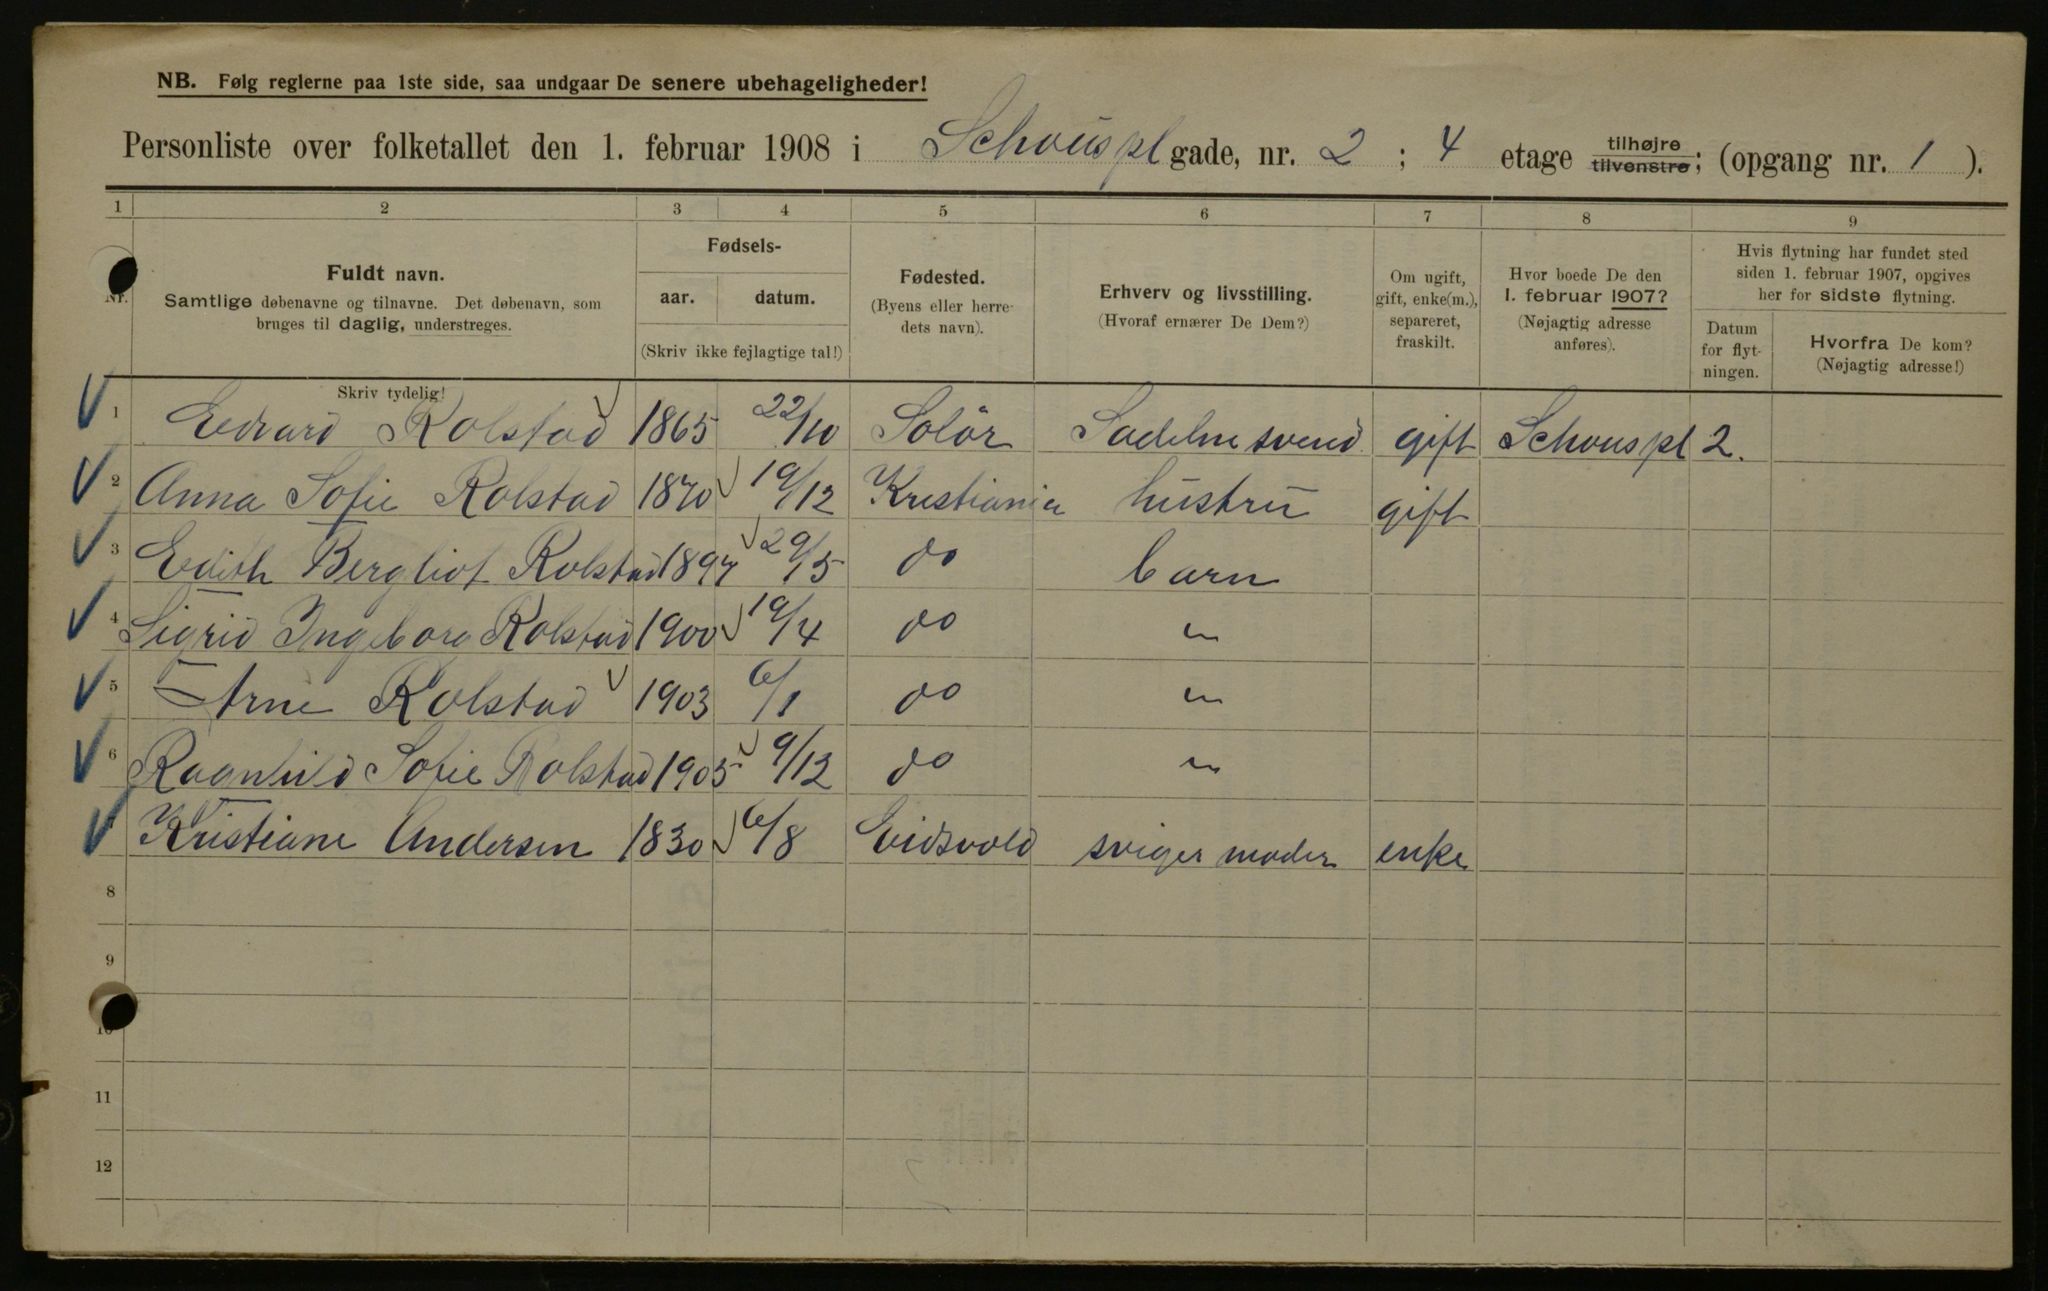 NB. Følg reglerne paa 1ste side, saa undgaar De senere ubehageligheder!
Personliste over folketallet den 1. februar 1908 i Schouspl gade, nr. 2 ; 4 etage tilhøjre tilvenstre; (opgang nr. 1 ).
1 2 3 4 5 6 7 8 9
Nr.
Fuldt navn.
Samtlige døbenavne og tilnavne. Det døbenavn, som
bruges til daglig, understreges.
Fødsels-
aar. datum.
(Skriv ikke fejlagtige tal!)
Fødested.
(Byens eller herre-
dets navn).
Erhverv og livsstilling.
(Hvoraf ernærer De Dem?)
Om ugift,
gift, enke(m.),
separeret,
fraskilt.
Hvor boede De den
1. februar 1907?
(Nøjagtig adresse
anføres).
Hvis flytning har fundet sted
siden 1. februar 1907, opgives
her for sidste flytning.
Datum
for flyt-
ningen.
Hvorfra De kom?
(Nøjagtig adresse!)
Skriv tydelig!
1 Edvard Rolstad 1865 22/10 Solør Sadelmsvend gift Schouspl 2.
2 Anna Sofie Rolstad 1870 19/12 Kristiania hustru gift
3 Edith Bergliot Rolstad 1897 29/5 do barn
4 Sigrid Ingeborg Rolstad 1900 19/4 do "
5 Arne Rolstad 1903 6/1 do "
6 Ragnhild Sofie Rolstad 1905 9/12 do "
Kristiane Andersen 1830 6/8 Eidsvold sviger moder enke
8
9
10
11
12